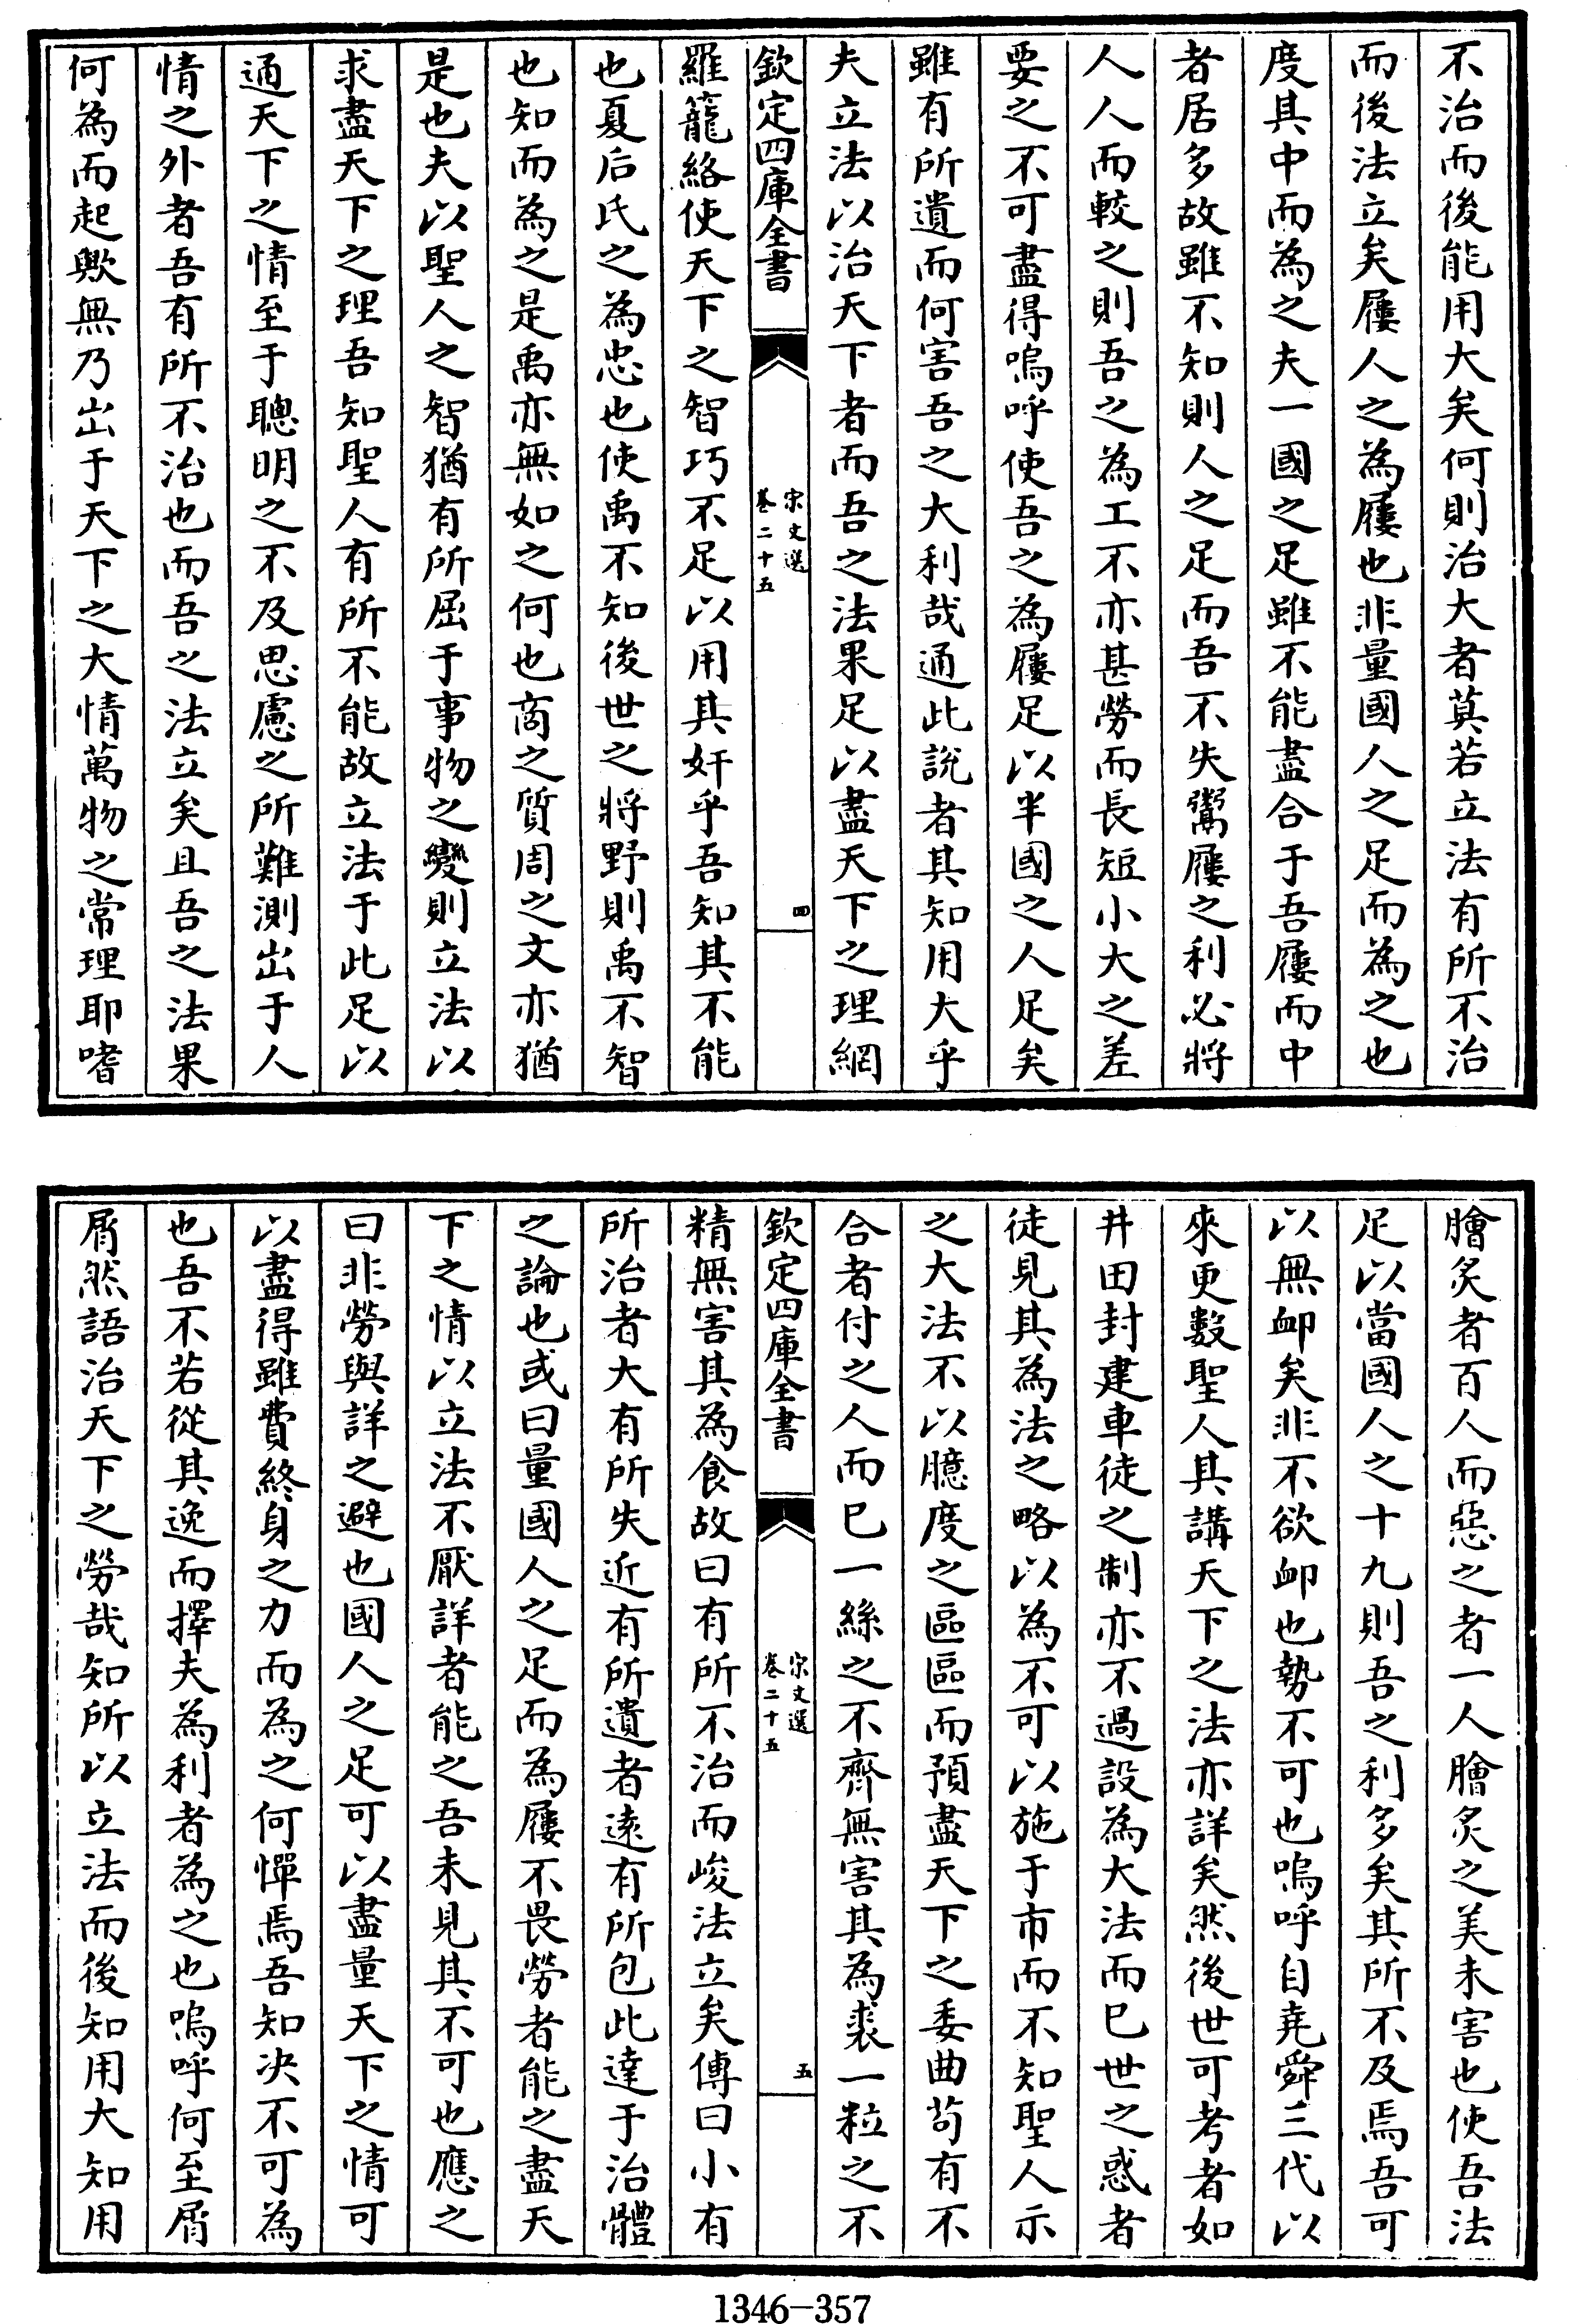 不治而後能用大矣何則治大者莫若立法有所不治
而後法立矣屨人之為屨也非量國人之足而為之也
度其中而為之夫一國之足雖不能盡合于吾屨而中
者居多故雖不知則人之足而吾不失鬻屨之利必將
人人而較之則吾之為工不亦甚勞而長短小大之差
要之不可盡得嗚呼使吾之為屨足以半國之人足矣
雖有所遺而何害吾之大利哉通此說者其知用大乎
夫立法以治天下者而吾之法果足以盡天下之理網
欽定四庫全書
宋文選
卷二十五
四
羅籠絡使天下之智巧不足以用其奸乎吾知其不能
也夏后氏之為忠也使禹不知後世之將野則禹不智
也知而為之是禹亦無如之何也商之質周之文亦猶
是也夫以聖人之智猶有所屈于事物之變則立法以
求盡天下之理吾知聖人有所不能故立法于此足以
通天下之情至于聰明之不及思慮之所難測出于人
情之外者吾有所不治也而吾之法立矣且吾之法果
何為而起歟無乃出于天下之大情萬物之常理耶嗜
膾炙者百人而惡之者一人膾炙之美未害也使吾法
足以當國人之十九則吾之利多矣其所不及焉吾可
以無卹矣非不欲卹也勢不可也嗚呼自堯舜三代以
來更數聖人其講天下之法亦詳矣然後世可考者如
井田封建車徒之制亦不過設為大法而已世之惑者
徒見其為法之略以為不可以施于市而不知聖人示
之大法不以臆度之區區而預盡天下之委曲苟有不
合者付之人而已一絲之不齊無害其為裘一粒之不
欽定四庫全書
宋文選
卷二十五
五
精無害其為食故曰有所不治而峻法立矣傳曰小有
所治者大有所失近有所遺者遠有所包此達于治體
之論也或曰量國人之足而為屨不畏勞者能之盡天
下之情以立法不厭詳者能之吾未見其不可也應之
曰非勞與詳之避也國人之足可以盡量天下之情可
以盡得雖費終身之力而為之何憚焉吾知决不可為
也吾不若從其逸而擇夫為利者為之也嗚呼何至屑
屑然語治天下之勞哉知所以立法而後知用大知用
1346-357